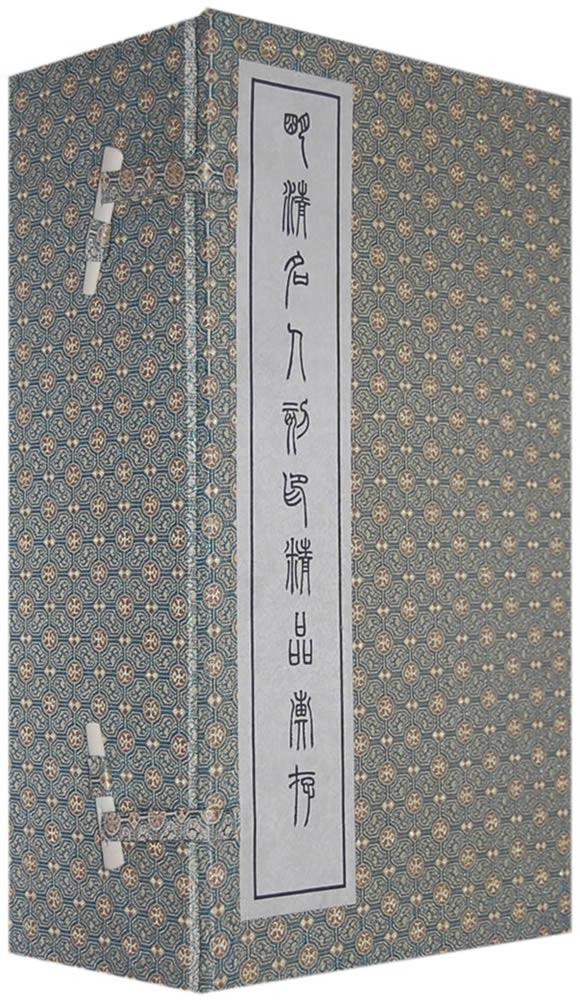 明清名人刻印精品彙存